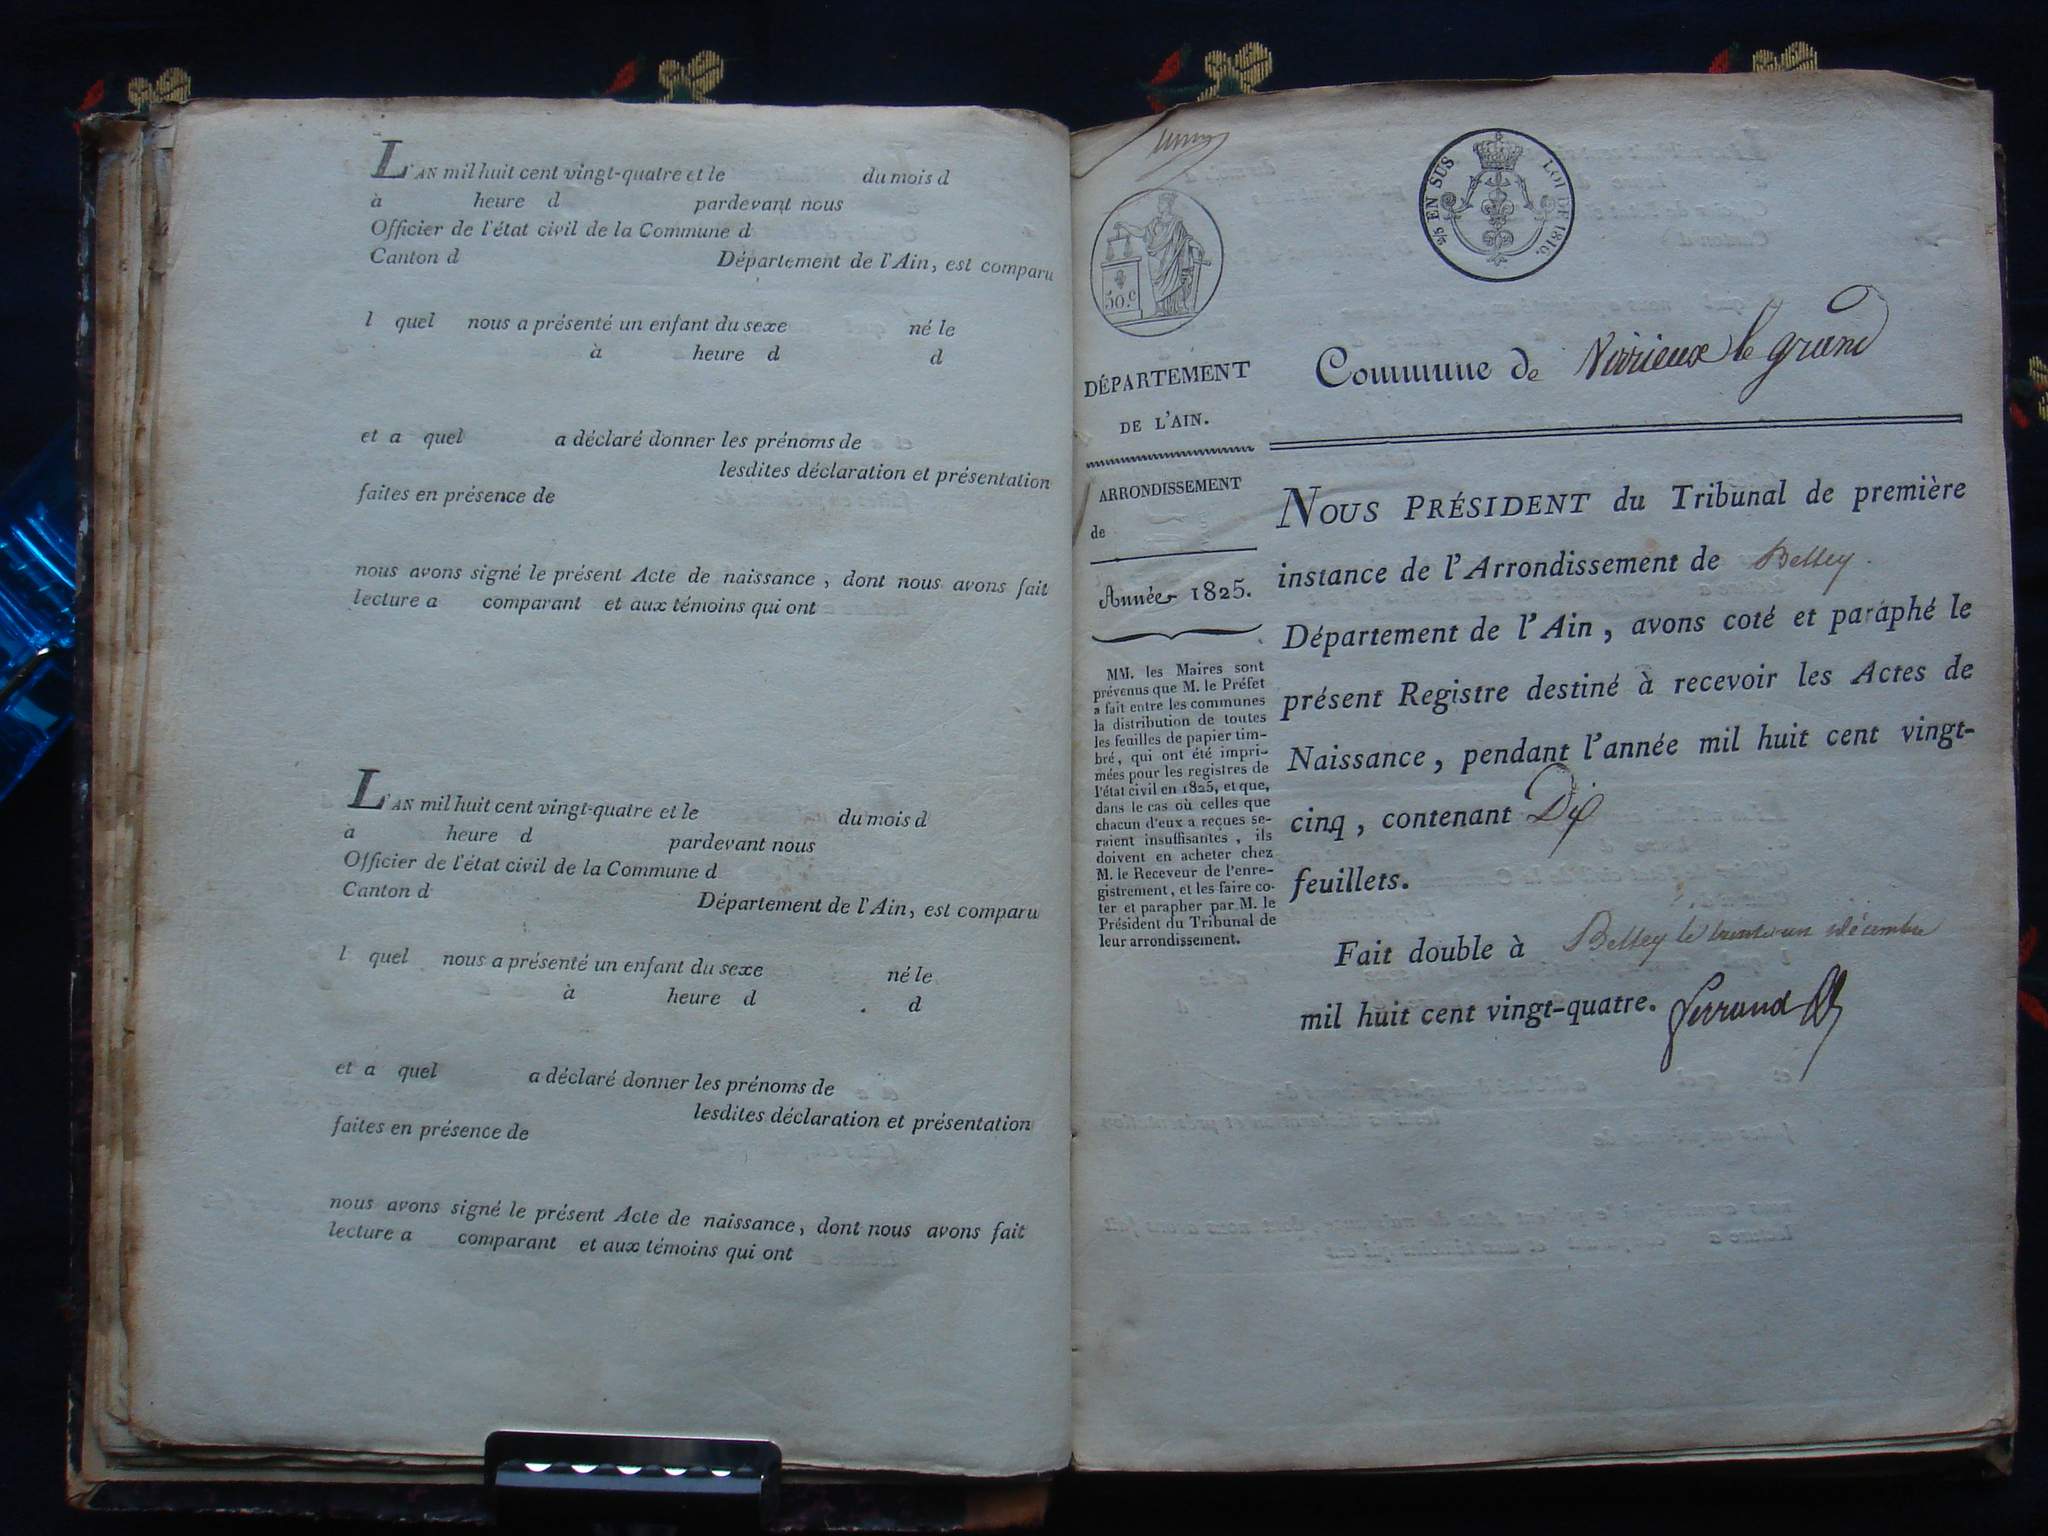 L'AN mil huit cent vingt-quatre et le du mois d
à heure d pardevant nous
Officier de l'état civil de la Commune d
Canton d Département de l'Ain, est comparu
l quel nous a présenté un enfant du sexe né le
à heure d d
et a quel a déclaré donner les prénoms de
lesdites déclaration et présentation
faites en présence de
nous avons signé le présent Acte de naissance, dont nous avons fait
lecture a comparant et aux témoins qui ont
L'AN mil huit cent vingt-quatre et le du mois d
à heure d pardevant nous
Officier de l'état civil de la Commune d
Canton d Département de l'Ain, est comparu
l quel nous a présenté un enfant du sexe né le
à heure d d
et a quel a déclaré donner les prénoms de
lesdites déclaration et présentation
faites en présence de
nous avons signé le présent Acte de naissance, dont nous avons fait
lecture a comparant et aux témoins qui ont
2/5 EN SUS LOI DE 1816.
50.c
DÉPARTEMENT
DE L'AIN.
ARRONDISSEMENT
de
Année 1825.
MM. les Maires sont
prévenus que M. le Préfet
a fait entre les communes
la distribution de toutes
les feuilles de papier tim-
bré, qui ont été impri-
mées pour les registres de
l'état civil en 1825, et que,
dans le cas où celles que
chacun d'eux a reçues se-
raient insuffisantes, ils
doivent en acheter chez
M. le Receveur de l'enre-
gistrement, et les faire co-
ter et parapher par M. le
Président du Tribunal de
leur arrondissement.
Commune de Virrieux le grand
NOUS PRÉSIDENT du Tribunal de première
instance de l'Arrondissement de Belley.
Département de l'Ain, avons coté et paraphé le
présent Registre destiné à recevoir les Actes de
Naissance, pendant l'année mil huit cent vingt-
cinq, contenant Dix
feuillets.
Fait double à Belley le trente un décembre
mil huit cent vingt-quatre. Ferrand